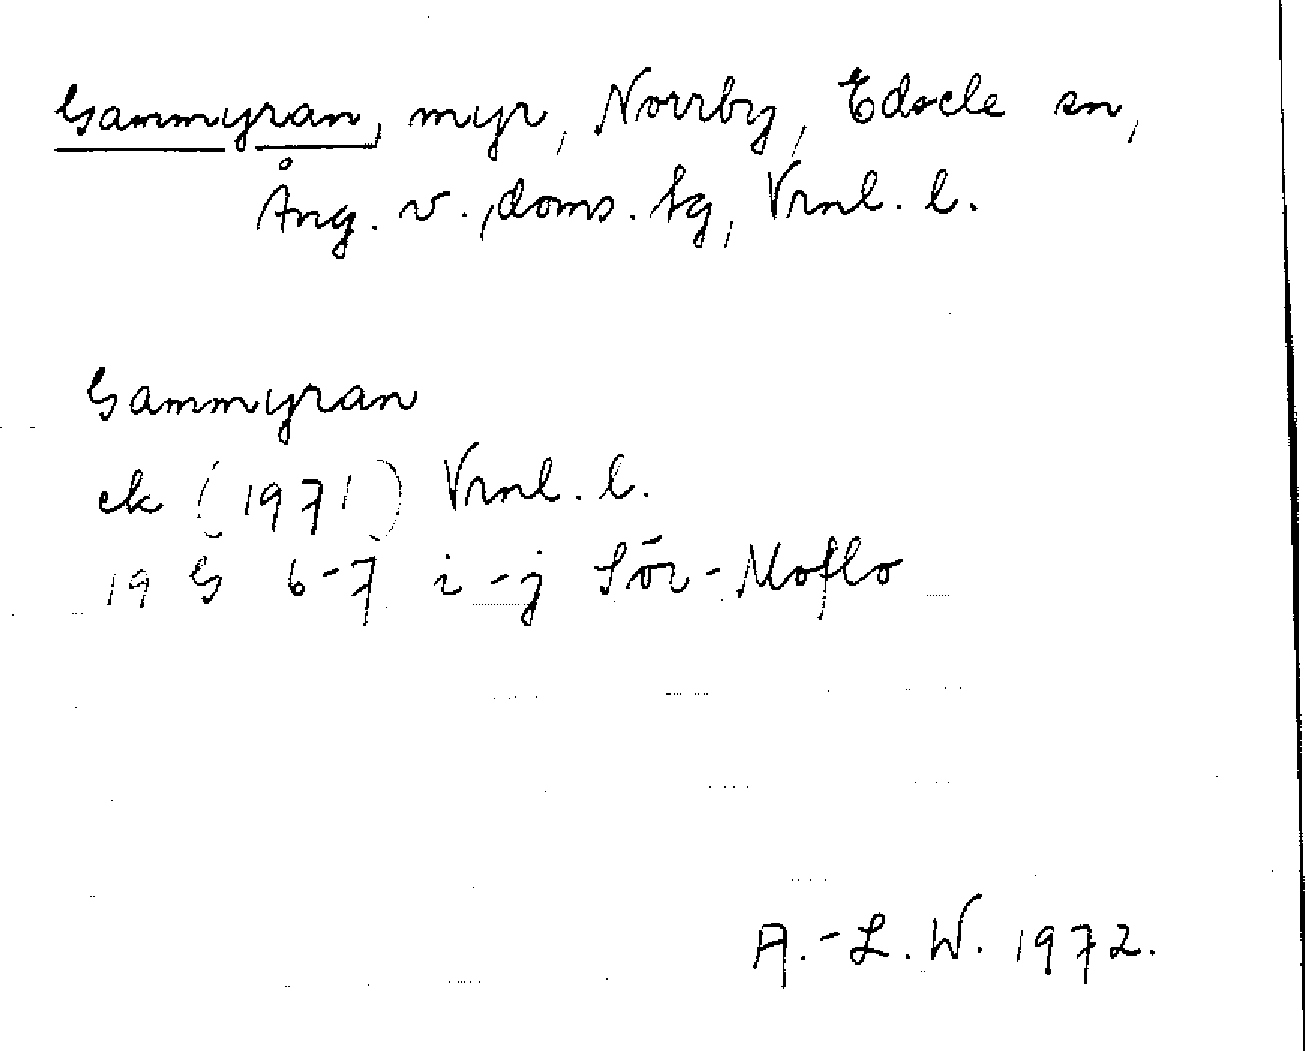 Gammyran, myr, Norrby, Edsele sn,
Ång. v., doms. tg, Vrnl. l.
Gammyran
ek (1971) Vrnl. l.
19 G 6-7 i-j Sör-Moflo
A.-L. W. 1972.